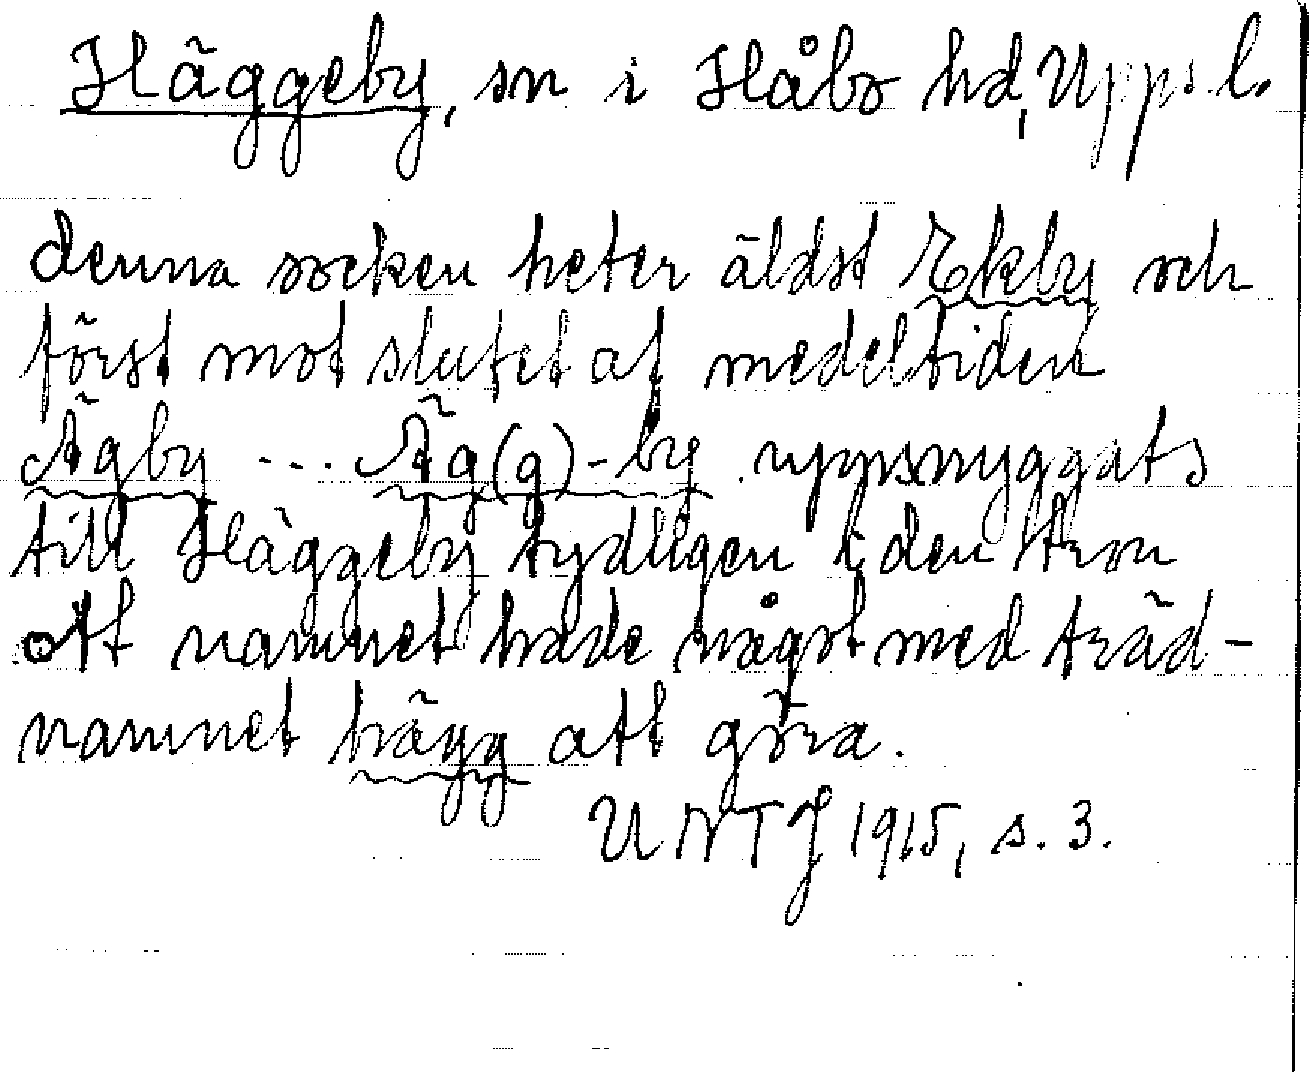 Häggeby, sn i Håbo hd, Upps. l.
denna socken heter äldst Ekby och
först mot slutet af medeltiden
Ägby ... Äg(g)-by uppsnyggats
till Häggeby tydligen i den tron
att namnet hade något med träd-
namnet hägg att göra.
UNTJ 1915, s. 3.